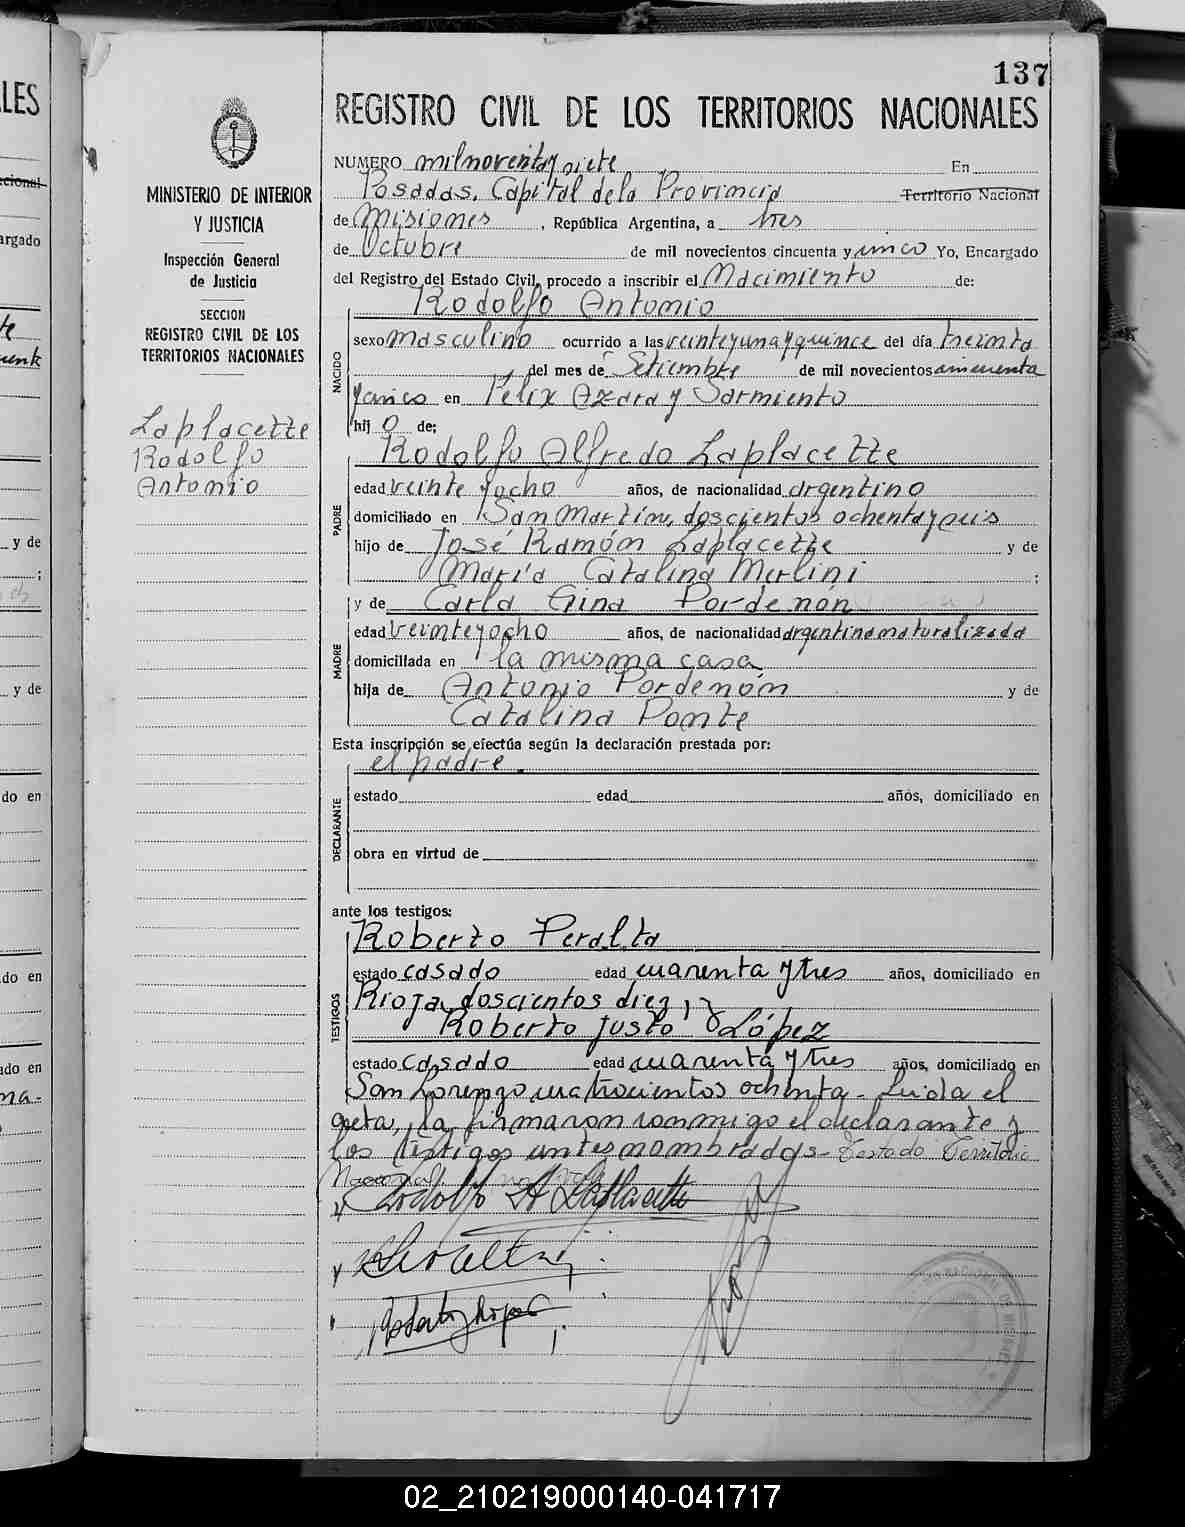 137
REGISTRO CIVIL DE LOS TERRITORIOS NACIONALES
MINISTERIO DE INTERIOR
Y JUSTICIA
Inspección General
de Justicia
SECCION
REGISTRO CIVIL DE LOS
TERRITORIOS NACIONALES
Laplacette
Rodolfo
Antonio
NUMERO mil noventa y siete En
Posadas, Capital de la Provincia Territorio Nacional
de Misiones, República Argentina, a tres
de Octubre de mil novecientos cincuenta y cinco Yo, Encargado
del Registro del Estado Civil, procedo a inscribir el Nacimiento de:
Rodolfo Antonio
NACIDO
sexo masculino ocurrido a las veinteyuna y quince del día treinta
del mes de Setiembre de mil novecientos cincuenta
y cinco en Félix Azara y Sarmiento
hij o de;
Rodolfo Alfredo Laplacette
PADRE
edad veinte y ocho años, de nacionalidad argentino
domiciliado en San Martín, doscientos ochenta y seis
hijo de José Ramón Laplacette y de
María Catalina Merlini ;
y de Carla Gina Pordenón
MADRE
edad veinte y ocho años, de nacionalidad argentina naturalizada
domiciliada en la misma casa
hija de Antonio Pordenón y de
Catalina Ponte
Esta inscripción se efectúa según la declaración prestada por:
el padre.
DECLARANTE
estado edad años, domiciliado en
obra en virtud de
ante los testigos:
Roberto Peralta
TESTIGOS
estado casado edad cuarenta y tres años, domiciliado en
Rioja, doscientos diez, y
Roberto Justo López
estado casado edad cuarenta y tres años, domiciliado en
San Lorenzo cuatrocientos ochenta. Leída el
acta, la firmaron conmigo el declarante y
los testigos antes nombrados. Testado Territorio
Nacional
Rodolfo A Laplacette
02_210219000140-041717